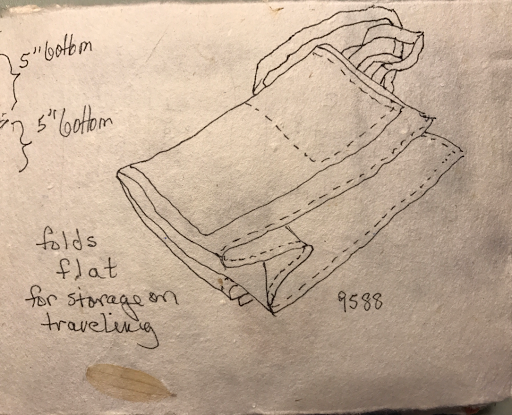 5" bottom
5" bottom
folds
flat
for storage on
traveling
9588